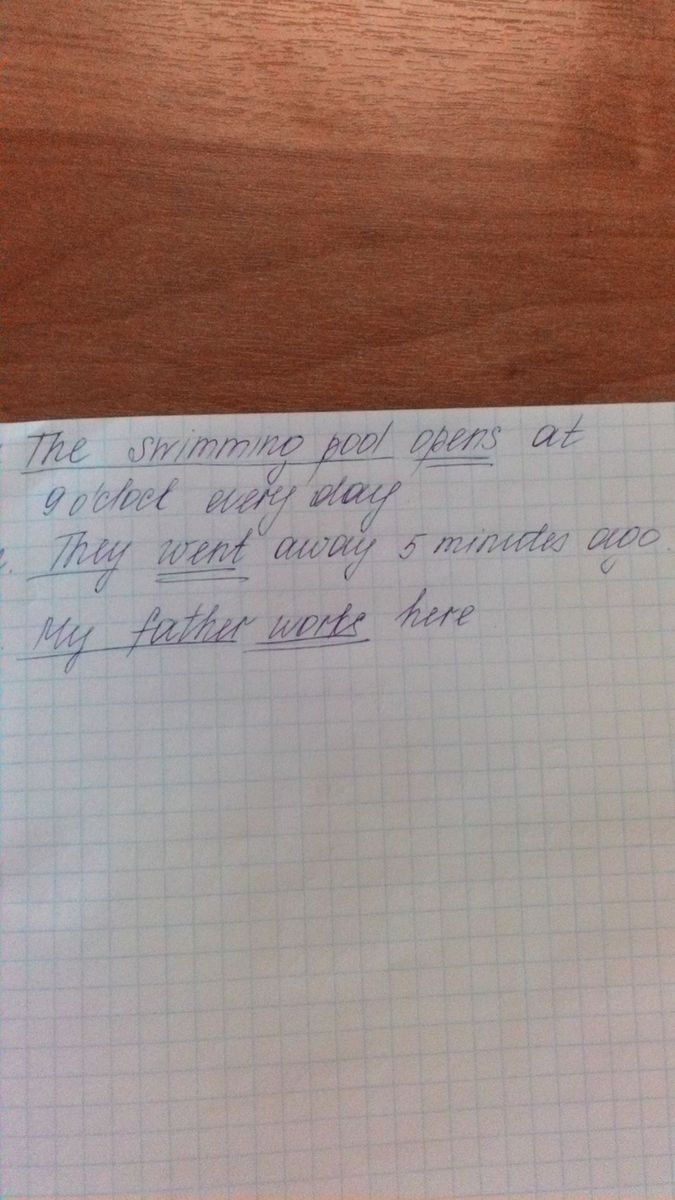 The swimming pool opens at
9 o'clock every day
They went away 5 minutes ago.
My father works here